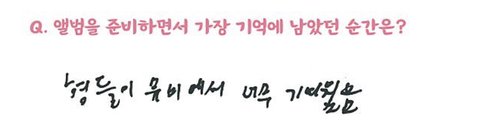 Q. 앨범을 준비하면서 가장 기억에 남았던 순간은?
형들이 뮤비에서 너무 귀여웠음